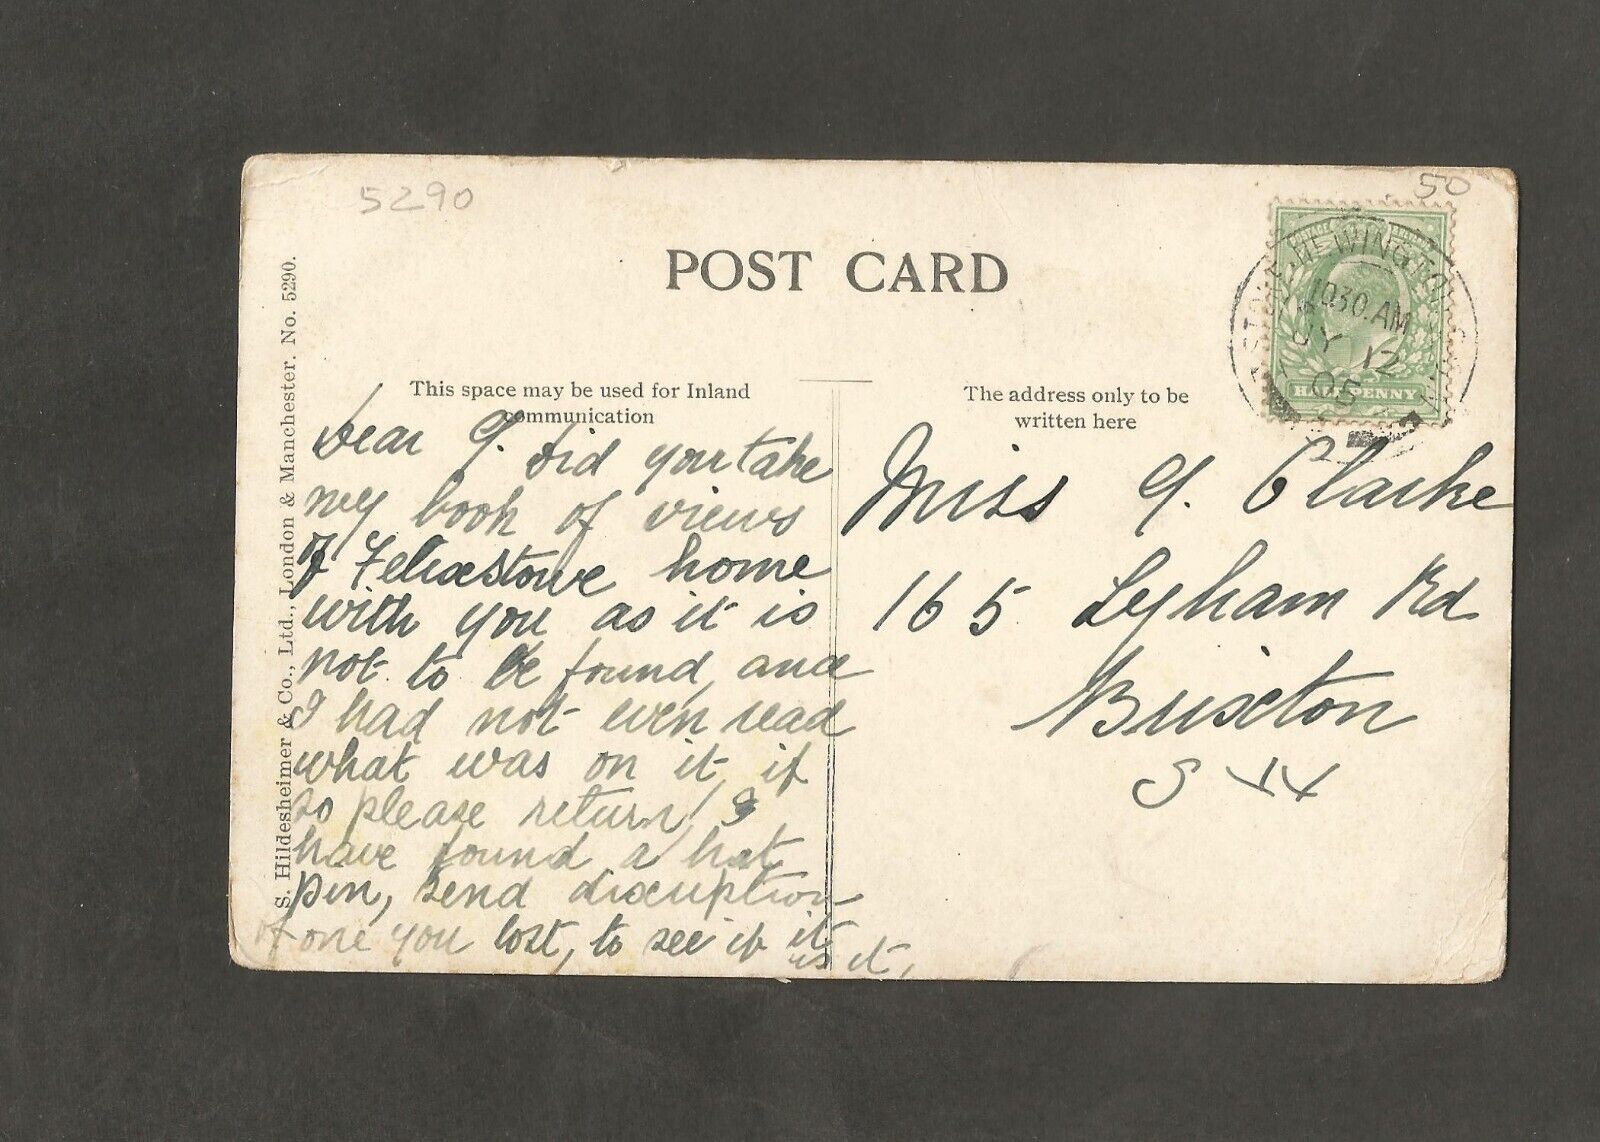 5290
50
POST CARD
STOKE NEWINGTON
10.30.AM
JY 12
05
HALF PENNY
This space may be used for Inland
communication
The address only to be
written here
S. Hildesheimer & Co., Ltd., London & Manchester. No. 5290.
Dear G. Did you take
my book of views
of Felixstowe home
with you as it is
not to be found, and
I had not even read
what was on it, if
so please return, I
have found a hat
pin, send discription
of one you lost, to see if it
is it,
Miss G. Clarke
165 Lyham Rd
Brixton
S W